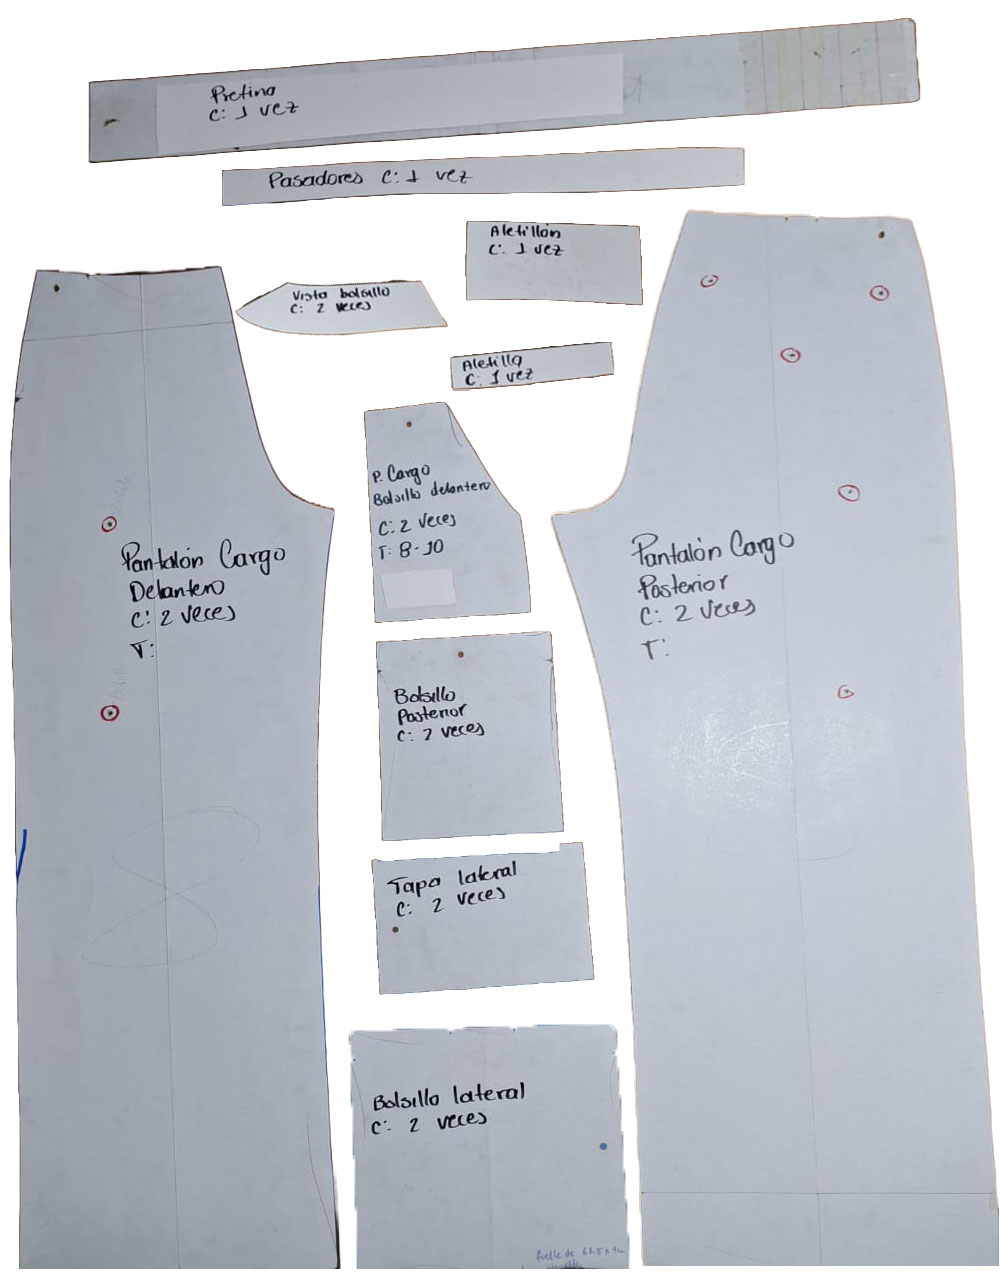 Pretina
C: 1 vez
Pasadores C: 1 vez
Aletillón
C: 1 vez
Vista bolsillo
C: 2 veces
Aletilla
C: 1 vez
P. Cargo
Bolsillo delantero
C: 2 veces
T: 8-10
Pantalón Cargo
Delantero
C: 2 veces
T:
Pantalón Cargo
Posterior
C: 2 veces
T:
Bolsillo
Posterior
C: 2 veces
Tapa lateral
C: 2 veces
Bolsillo lateral
C: 2 veces
fuelle de